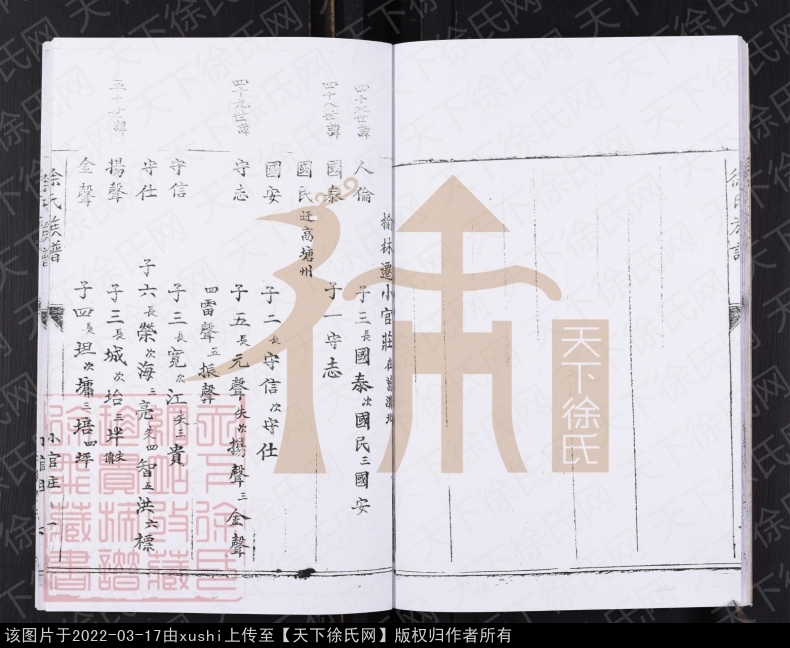 榆林遷小官莊
四十七世諱
人倫 子三 長國泰 次國民 三國安
四十八世諱
國泰 子一守志
國民 迁高塘州
國安 子二 長守信 次守仕
四十九世諱
守志 子五 長元聲 次揚聲 三金聲
四雷聲 五振聲
守信 子三 長寬 次江 三貴
守仕 子六 長榮 次海 三亮 四智 五洪 六標
五十世諱
揚聲 子三 長城 次坮 三垟
金聲 子四 長坦 次墉 三培 四坪
徐氏族譜
小官庄
徐氏族譜
天下徐氏
天下徐氏网
该图片于2022-03-17由xushi上传至【天下徐氏网】版权归作者所有